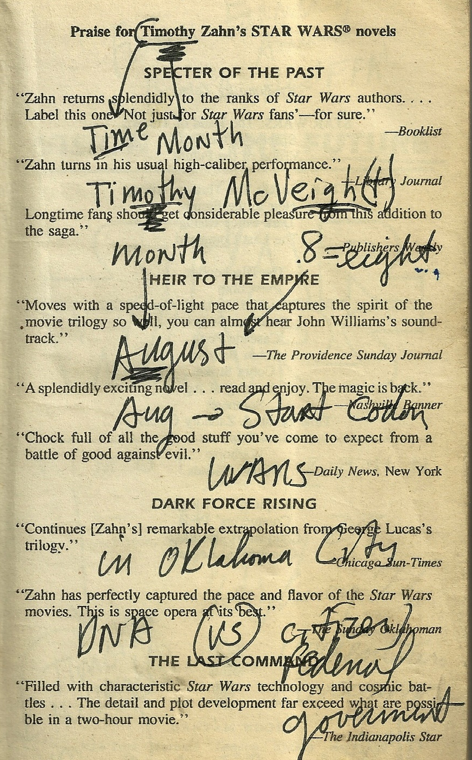 Praise for Timothy Zahn's STAR WARS® novels
SPECTER OF THE PAST
“Zahn returns splendidly to the ranks of Star Wars authors. . . .
Label this one ‘Not just for Star Wars fans’—for sure.”
—Booklist
Time Month
“Zahn turns in his usual high-caliber performance.”
—Library Journal
Timothy McVeigh(t)
Longtime fans should get considerable pleasure from this addition to
the saga.”
—Publishers Weekly
month .8=eight
HEIR TO THE EMPIRE
“Moves with a speed-of-light pace that captures the spirit of the
movie trilogy so well, you can almost hear John Williams's sound-
track.”
—The Providence Sunday Journal
August
“A splendidly exciting novel . . . read and enjoy. The magic is back.”
—Nashville Banner
Aug → Start Codon
“Chock full of all the good stuff you've come to expect from a
battle of good against evil.”
—Daily News, New York
WARS
DARK FORCE RISING
“Continues [Zahn's] remarkable extrapolation from George Lucas's
trilogy.”
—Chicago Sun-Times
in Oklahoma City
“Zahn has perfectly captured the pace and flavor of the Star Wars
movies. This is space opera at its best.”
—The Sunday Oklahoman
DNA (VS)
Federal
THE LAST COMMAND
“Filled with characteristic Star Wars technology and cosmic bat-
tles . . . The detail and plot development far exceed what are possi-
ble in a two-hour movie.”
goverment
—The Indianapolis Star